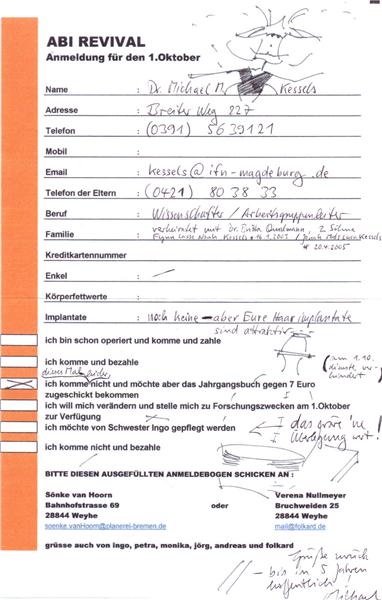 ABI REVIVAL
Anmeldung für den 1.Oktober
Name : Dr. Michael M. Kessels
Adresse : Breiter Weg 227
Telefon : (0391) 5639121
Mobil :
Email : kessels@ifn-magdeburg.de
Telefon der Eltern : (0421) 80 38 33
Beruf : Wissenschaftler / Arbeitsgruppenleiter
Familie : verheiratet mit Dr. Britta Qualmann, 2 Söhne
Fynn Lasse Noah Kessels * 16.1.2003 / Kessels
* 20.4.2005
Kreditkartennummer :
Enkel : —
Körperfettwerte :
Implantate : noch keine – aber Eure Haarimplantate
sind attraktiv
ich bin schon operiert und komme und zahle
ich komme und bezahle
(am 1.10.
dienstl. verhindert)
dieses Mal leider
ich komme nicht und möchte aber das Jahrgangsbuch gegen 7 Euro
zugeschickt bekommen
ich will mich verändern und stelle mich zu Forschungszwecken am 1.Oktober
zur Verfügung
ich möchte von Schwester Ingo gepflegt werden
das wäre 'ne
Überlegung wert!
ich komme nicht und bezahle
BITTE DIESEN AUSGEFÜLLTEN ANMELDEBOGEN SCHICKEN AN :
Sönke van Hoorn oder Verena Nullmeyer
Bahnhofstrasse 69 Bruchweiden 25
28844 Weyhe 28844 Weyhe
soenke.vanHoorn@planerei-bremen.de mail@folkard.de
grüsse auch von ingo, petra, monika, jörg, andreas und folkard
Grüße zurück
– bis in 5 Jahren
hoffentlich!
Michael